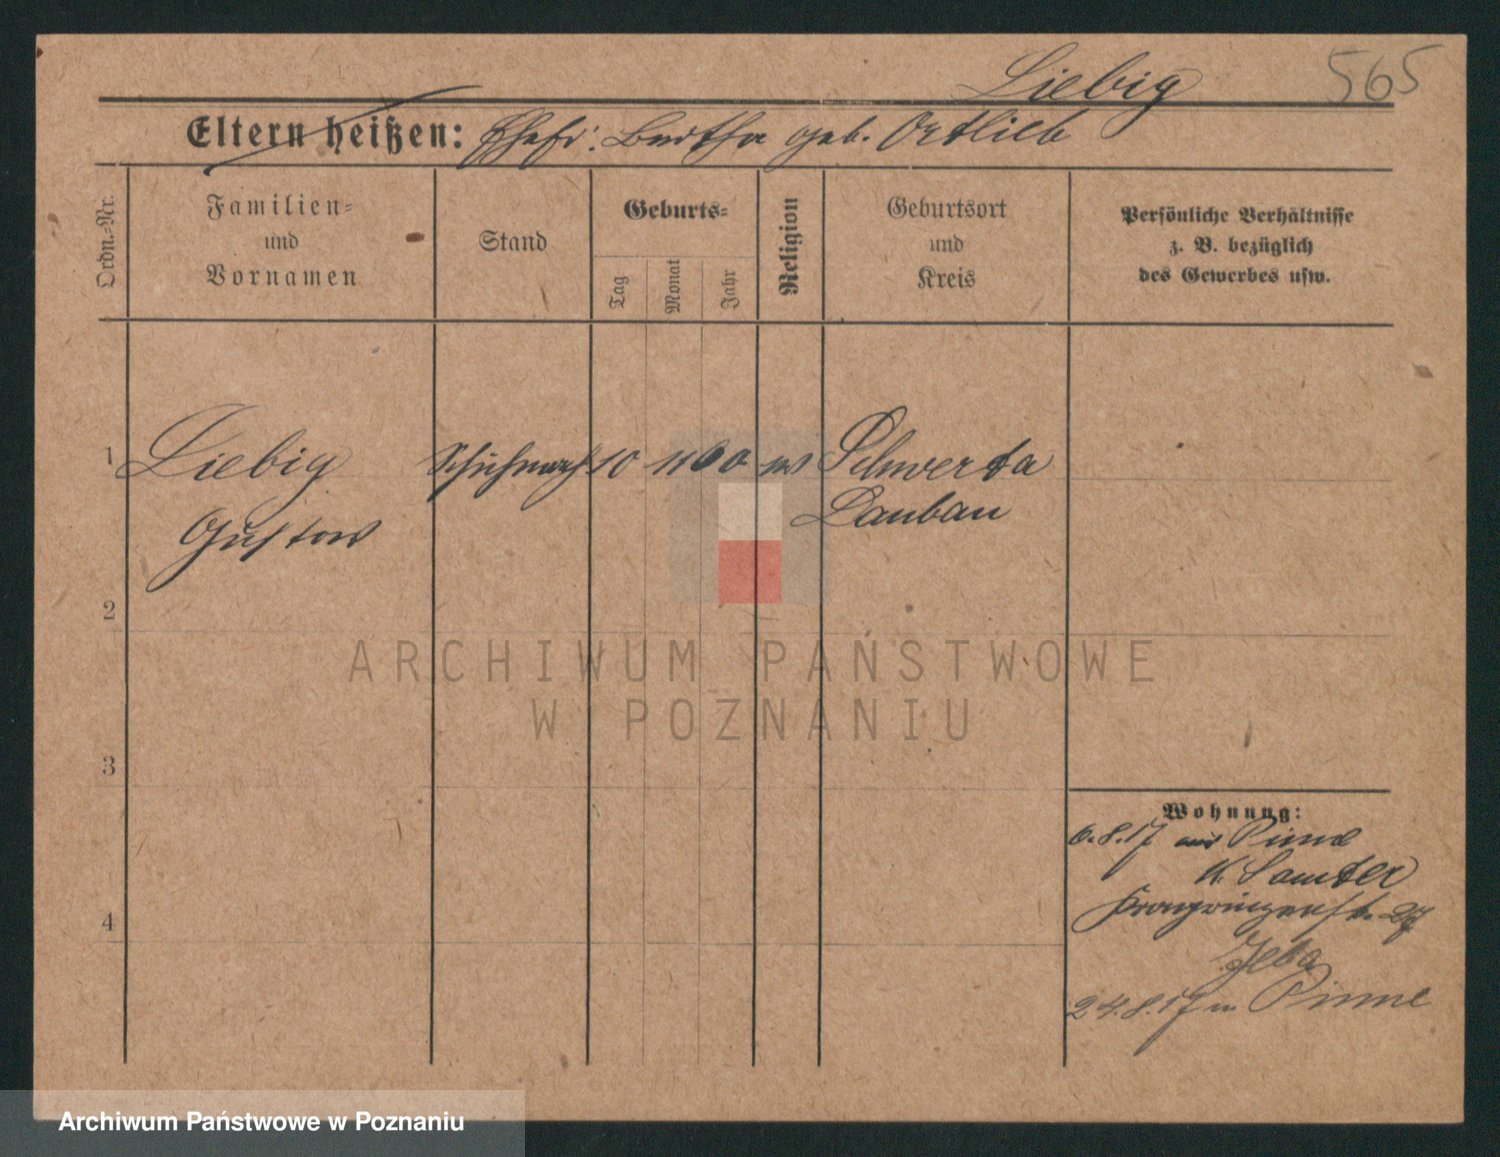 Liebig 565
Eltern heißen: Ehefr: Bertha geb. Ortlieb
Ordn.-Nr.
Familien-
und
Vornamen
Stand
Geburts-
Tag
Monat
Jahr
Religion
Geburtsort
und
Kreis
Persönliche Verhältnisse
z. B. bezüglich
des Gewerbes usw.
1 Liebig Schuhmach 10 11 60 Schwerta
Gustav Lauban
2
ARCHIWUM PAŃSTWOWE
W POZNANIU
3
Wohnung:
6.8.17 aus Pinne
K. Samter
Kronprinzenstr. 27
24.8.17 n Pinne
4
Archiwum Państwowe w Poznaniu